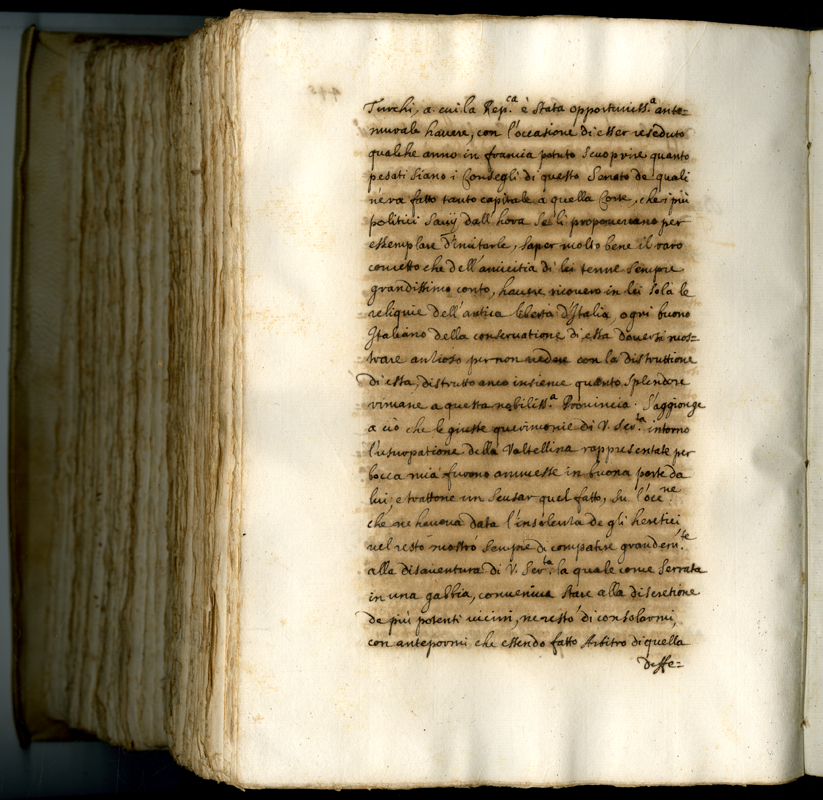 Turchi, a cui la Rep.ca è stata opportuniss.a ante=
murale havere, con l'occasione di esser reseduto
qualche anno in francia potuto scuoprire quanto
pesati siano i Consegli di questo Senato de quali
n'era fatto tanto capitale a quella Corte, che i più
politici Savij dall'hora se li proponevano per
essemplare d'imitarle, saper molto bene il raro
concetto che dell'amicitia di lei tenne sempre
grandissimo conto, havere ricovero in lei sola le
reliquie dell'antica libertà d'Italia, ogni buono
Italiano della conservatione di essa doversi mos=
trare ansioso per non vedere con la distruttione
di essa, distrutto anco insieme quanto splendore
rimane a questa nobiliss.a Provincia. S'aggionge
a ciò che le giuste querimonie di V. Ser.tà intorno
l'usurpatione della Valtellina rappresentate per
bocca mia furono ammesse in buona parte da
lui, e trattone un scusar quel fatto, su l'occ.ne
che ne haveva data l'insolenza de gli heretici
nel resto mostrò sempre di compatire grandem.te
alla disaventura di V. Ser.tà la quale come serrata
in una gabbia, conveniva stare alla discretione
de più potenti vicini, ne restò di consolarmi,
con antepormi che essendo fatto Arbitro di quella
diffe=